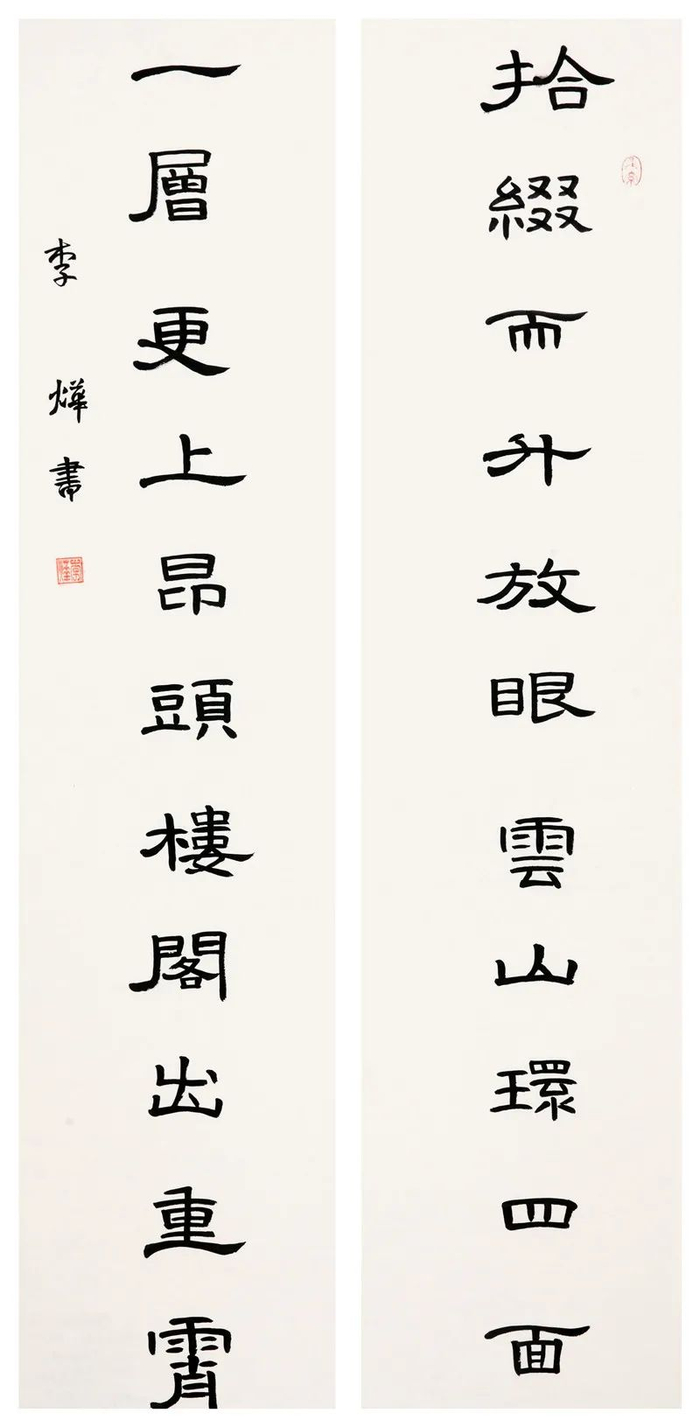 拾綴而升放眼雲山環四面
一層更上昂頭樓閣出重霄
李燁書